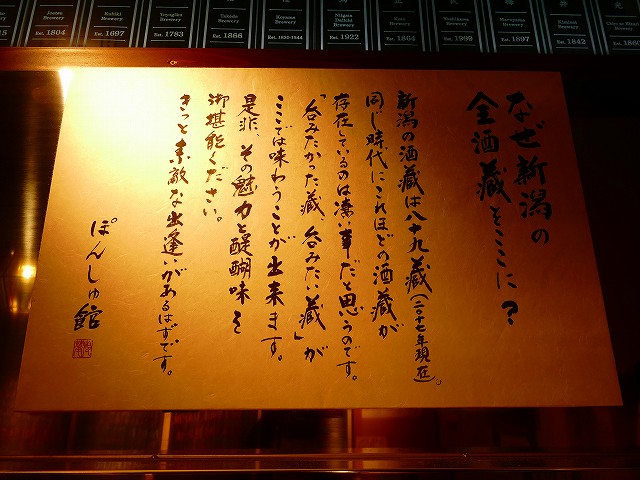 Joetsu Brewery
Est. 1804
Kubiki Brewery
Est. 1697
Toyogiku Brewery
Est. 1783
Takeda Brewery
Est. 1866
Koyama Brewery
Est. 1830-1844
Niigata Daiichi Brewery
Est. 1922
Kato Brewery
Est. 1999
Maruyama Brewery
Est. 1897
Est. 1842
なぜ新潟の
全酒蔵をここに?
新潟の酒蔵は八十九蔵(二十七年現在)。
同じ時代にこれほどの酒蔵が
存在しているのは凄い事だと思うのです。
「呑みたかった蔵、呑みたい蔵」が
ここでは味わうことが出来ます。
是非、その魅力と醍醐味を
御堪能ください。
きっと素敵な出逢いがあるはずです。
ぽんしゅ館